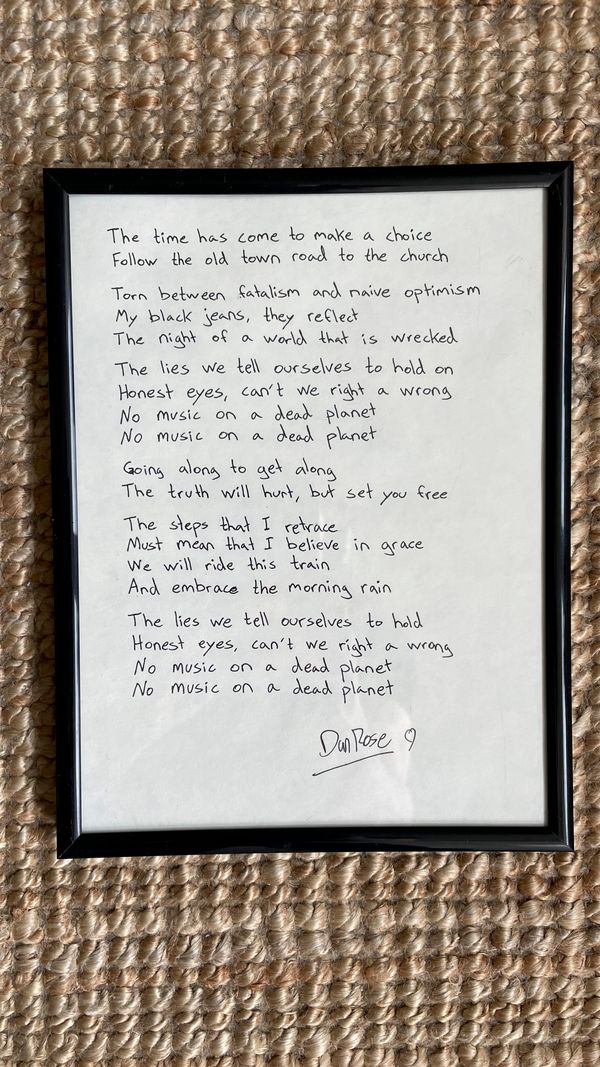 The time has come to make a choice
Follow the old town road to the church
Torn between fatalism and naive optimism
My black jeans, they reflect
The night of a world that is wrecked
The lies we tell ourselves to hold on
Honest eyes, can't we right a wrong
No music on a dead planet
No music on a dead planet
Going along to get along
The truth will hurt, but set you free
The steps that I retrace
Must mean that I believe in grace
We will ride this train
And embrace the morning rain
The lies we tell ourselves to hold
Honest eyes, can't we right a wrong
No music on a dead planet
No music on a dead planet
Dan Rose